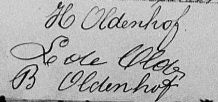 H Oldenhof
L de Olde
B Oldenhof